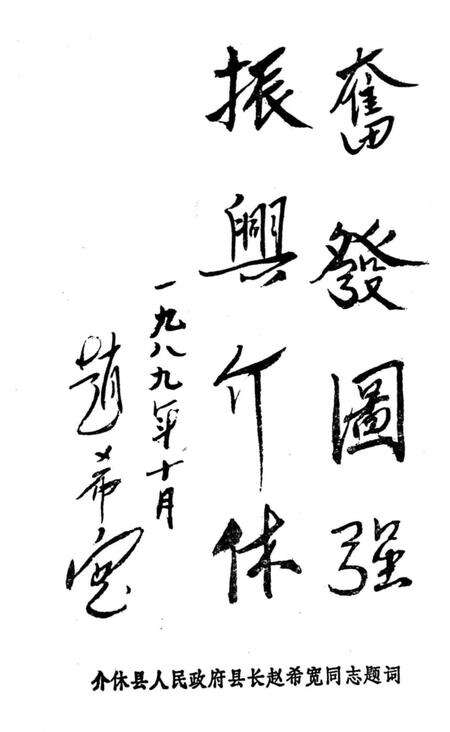 奮發圖强
振興介休
一九八九年十月
趙希宽
介休县人民政府县长赵希宽同志题词